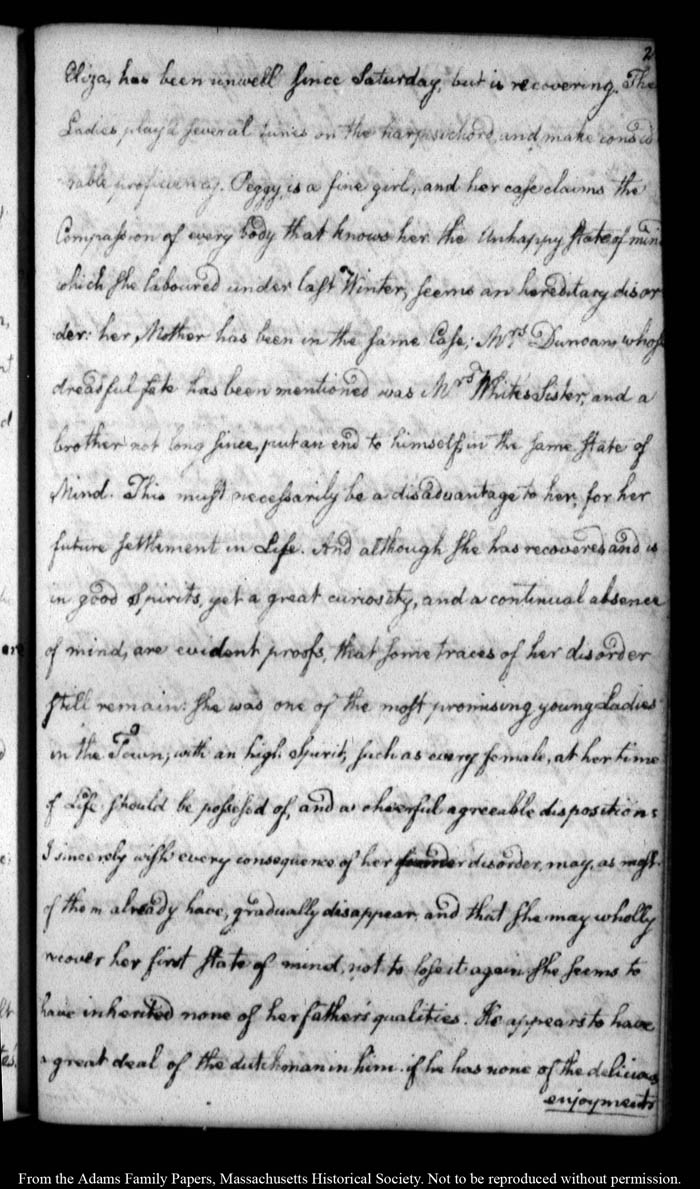 2
Eliza, has been unwell since Saturday, but is recovering. The
Ladies play'd several tunes on the harpsichord, and make consid
rable proficiency. Peggy, is a fine girl, and her case claims the
Compassion of every body that knows her. the Unhappy state of mind
which she laboured under last Winter, seems an hereditary disor
der: her Mother has been in the same Case; Mrs. Duncan whose
dreadful fate has been mentioned was Mrs. White's Sister, and a
brother not long since, put an end to himself, in the same state of
Mind. This must necessarily be a disadvantage to her, for her
future settlement in Life. And although she has recovered and is
in good spirits, yet a great curiosity, and a continual absence
of mind, are evident proofs, that some traces of her disorder
still remain: she was one of the most promising young Ladies
in the Town, with an high Spirit, such as every female, at her time
of Life should be possessed of, and a cheerful agreeable disposition:
I sincerely wish every consequence of her disorder, may, as most
of them already have, gradually disappear, and that she may wholly
recover her first state of mind, not to lose it again. She seems to
have inherited none of her father's qualities. He appears to have
a great deal of the dutchman in him. if he has none of the delicious
enjoyments
From the Adams Family Papers, Massachusetts Historical Society. Not to be reproduced without permission.